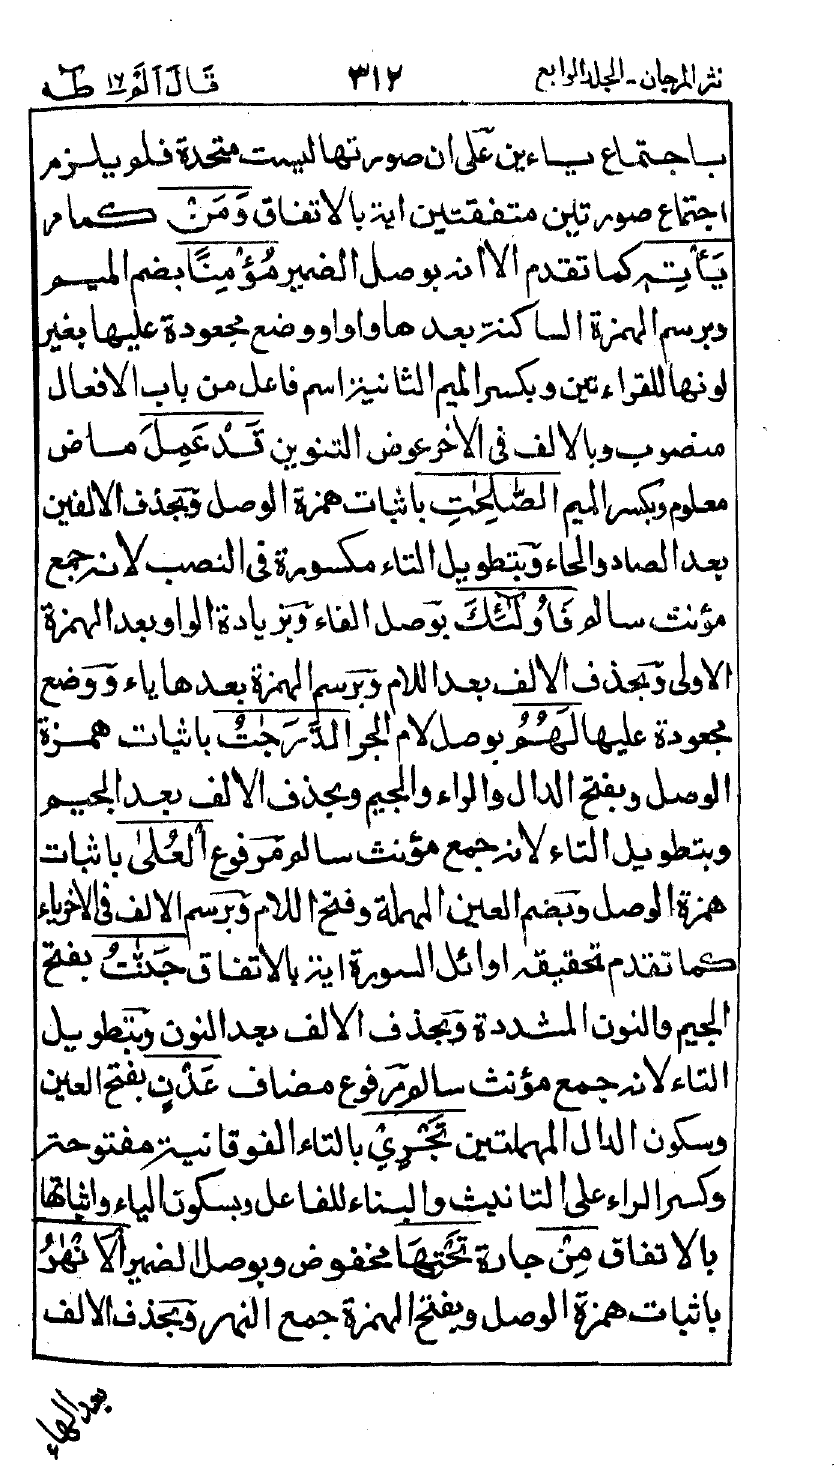 نثر المرجان - الجلد الرابع ٣١٢ قَالَ اَلَمْ ١٦ طٰهٰ
باجتماع ياءين على ان صورتها ليست متحدة فلو يلزم
اجتماع صورتين متفقتين اية بالاتفاق وَمَنْ كما مر
يَأْتِهٖ كما تقدم الا انه بوصل الضمير مُؤْمِنًا بضم الميم
وبرسم الهمزة الساكنة بعدها واوا ووضع مجعودة عليها بغير
لونها للقراءتين وبكسر الميم الثانية اسم فاعل من باب الافعال
منصوب وبالالف فى الاخر عوض التنوين قَدْ عَمِلَ ماض
معلوم وبكسر الميم الصّٰلِحٰتِ باثبات همزة الوصل وَبحذف الالفين
بعد الصاد والحاء وَبتطويل التاء مكسورة فى النصب لانه جمع
مؤنث سالم فَاُولٰٓئِكَ بوصل الفاء وَبزيادة الواو بعد الهمزة
الاولى وَبحذف الالف بعد اللام وَبرسم الهمزة بعدها ياء وَوضع
مجعودة عليها لَهُمُ بوصل لام الجر الدَّرَجٰتُ باثبات همزة
الوصل وبفتح الدال والراء والجيم وبحذف الالف بعد الجيم
وبتطويل التاء لانه جمع مؤنث سالم مَرفوع الْعُلىٰ باثبات
همزة الوصل وبَضم العين المهملة وفتح اللام وَبرسم الالف فى الاخر ياء
كما تقدم تحقيقه اوائل السورة اية بالاتفاق جَنّٰتُ بفتح
الجيم والنون المشددة وَبحذف الالف بعد النون وبتطويل
التاء لانه جمع مؤنث سالم مَرفوع مضاف عَدْنٍ بفتح العين
وسكون الدال المهملتين تَجْرِيْ بالتاء الفوقانية مفتوحة
وكسر الراء على التانيث والبناء للفاعل وبسكون الياء واثباتها
بالاتفاق مِنْ جارة تَحْتِهَا مخفوض وبوصل الضمير الْاَنْهٰرُ
باثبات همزة الوصل وبفتح الهمزة جمع النهر وَبحذف الالف
بعد الهاء